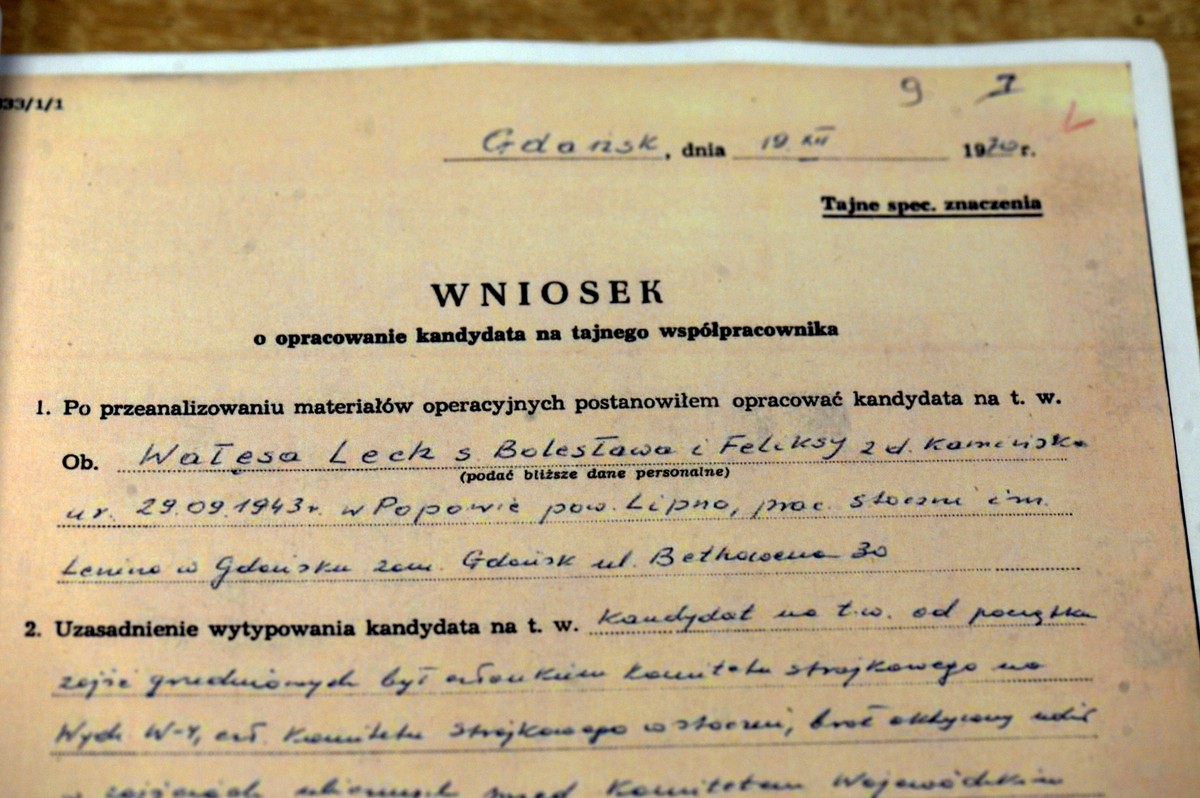 333/1/1
9 7
Gdańsk, dnia 19 XII 1970 r.
Tajne spec. znaczenia
WNIOSEK
o opracowanie kandydata na tajnego współpracownika
1. Po przeanalizowaniu materiałów operacyjnych postanowiłem opracować kandydata na t. w.
Ob. Wałęsa Lech s. Bolesława i Feliksy z d. Kamińska
(podać bliższe dane personalne)
ur. 29.09.1943 r. w Popowie pow. Lipno, prac. stoczni im.
Lenina w Gdańsku zam. Gdańsk ul. Bethowena 30
2. Uzasadnienie wytypowania kandydata na t. w. Kandydat na t.w. od początku
zajść grudniowych był członkiem Komitetu strajkowego na
Wydz. W-4, czł. Komitetu Strajkowego w stoczni, brał aktywny udział
w zajściach ulicznych przed Komitetem Wojewódzkim